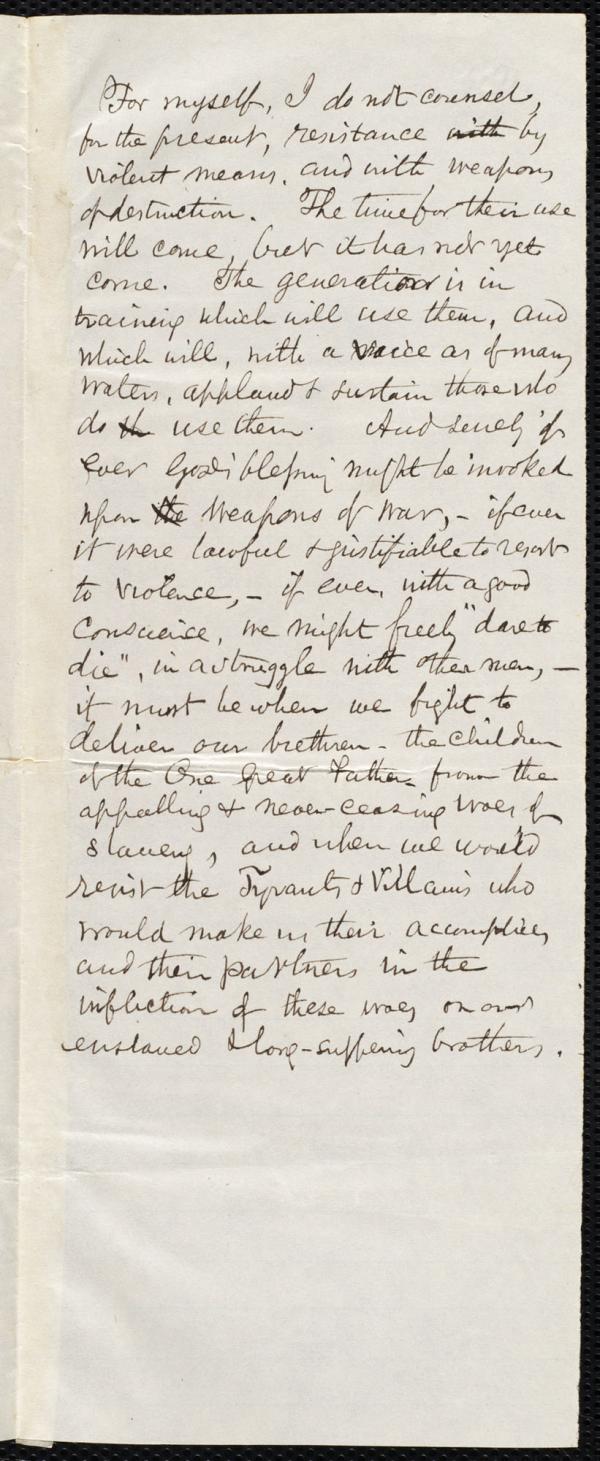 For myself, I do not counsel,
for the present, resistance with by
violent means, and with weapons
of destruction. The time for their use
will come, but it has not yet
come. The generation is in
training which will use them, and
which will, with a voice as of many
waters, applaud & sustain those who
do th use them. And surely if
ever God's blessing might be invoked
upon the weapons of war, - if ever
it were lawful & justifiable to resort
to violence, - if ever, with a good
conscience, we might freely "dare to
die", in a struggle with other men, -
it must be when we fight to
deliver our brethren - the children
of the One Great Father - from the
appalling & never-ceasing woes of
slavery, and when we would
resist the Tyrants & Villains who
would make us their accomplices
and their partners in the
infliction of these woes on our
enslaved & long-suffering brothers.